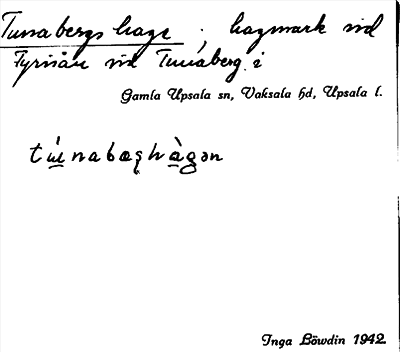 Tunabergs hage ; hagmark vid
Fyrisån vid Tunaberg i
Gamla Upsala sn, Vaksala hd, Upsala l.
tú̱nabæʂhà̱gən
Inga Löwdin 1942